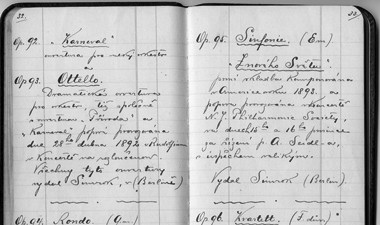 32.
Op. 92. „Karneval"
ouvertura pro velký orkestr
a
Op 93. Ottello.
Dramatická ouvertura
pro orkestr, tyž společně
s ouverturou „Příroda" a
„Karneval" poprvé provozována
dne 28ho dubna 1892 v Rudolfinum
v koncertě na rozloučenou.
Všechny tyto ouvertury
vydal Simrok, v (Berlíně)
Op. 94. Rondo. (G m)
Op. 95. Sinfonie. (E m)
„Z nového Světa".
první skladba komponována
v Americe roku 1893. a
poprvé provozována
N. Y. Philharmonic Society,
ve dnech 15ho a 16ho prosince
za řízení p. A. Seidl-a.
s úspěchem velikým.
Vydal Simrok (Berlin).
Op. 96. Kvartett. (F dur)